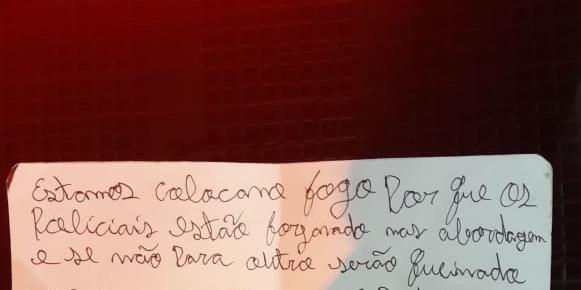 Estamos colocano fogo Por que Os
Policiais estão forjando nas abordagem
e se não Para outro serão Queimado